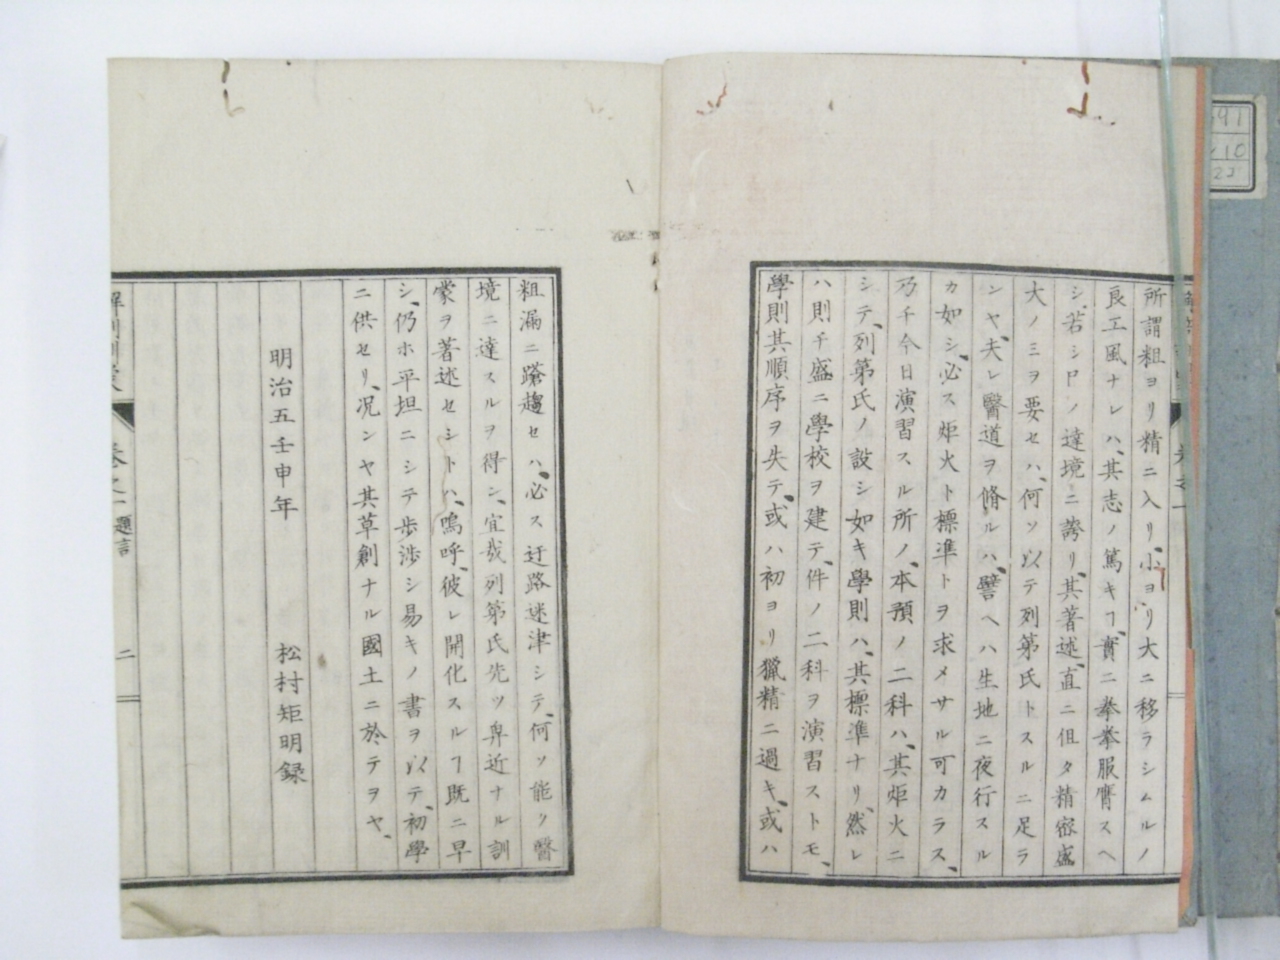 所謂粗ヨリ精ニ入リ、小ヨリ大ニ移ラシムルノ
良工風ナレハ、其志ノ篤キヿ、實ニ拳拳服膺スヘ
シ、若シ卩ノ達境ニ誇リ、其著述、直ニ但タ精密盛
大ノミヲ要セハ、何ソ以テ列第氏トスルニ足ラ
ンヤ、夫レ醫道ヲ脩ルハ、譬ヘハ生地ニ夜行スル
カ如シ、必ス炬火ト標準トヲ求メサル可カラス、
乃チ今日演習スル所ノ、本預ノ二科ハ、其炬火ニ
シテ、列第氏ノ設シ如キ學則ハ、其標準ナリ、然レ
ハ則チ盛ニ學校ヲ建テ、件ノ二科ヲ演習ストモ、
學則其順序ヲ失テ、或ハ初ヨリ獵精ニ過キ、或ハ
粗漏ニ蹌趨セハ、必ス迂路迷津シテ、何ソ能ク醫
境ニ達スルヲ得ン、宜哉列第氏先ツ卑近ナル訓
蒙ヲ著述セシトハ、嗚呼、彼レ開化スルヿ既ニ早
シ、仍ホ平坦ニシテ歩渉シ易キノ書ヲ以テ、初學
ニ供セリ、况ンヤ其草創ナル國土ニ於テヲヤ、
明治五壬申年
松村矩明録
解剖訓蒙
卷之一
題言
二